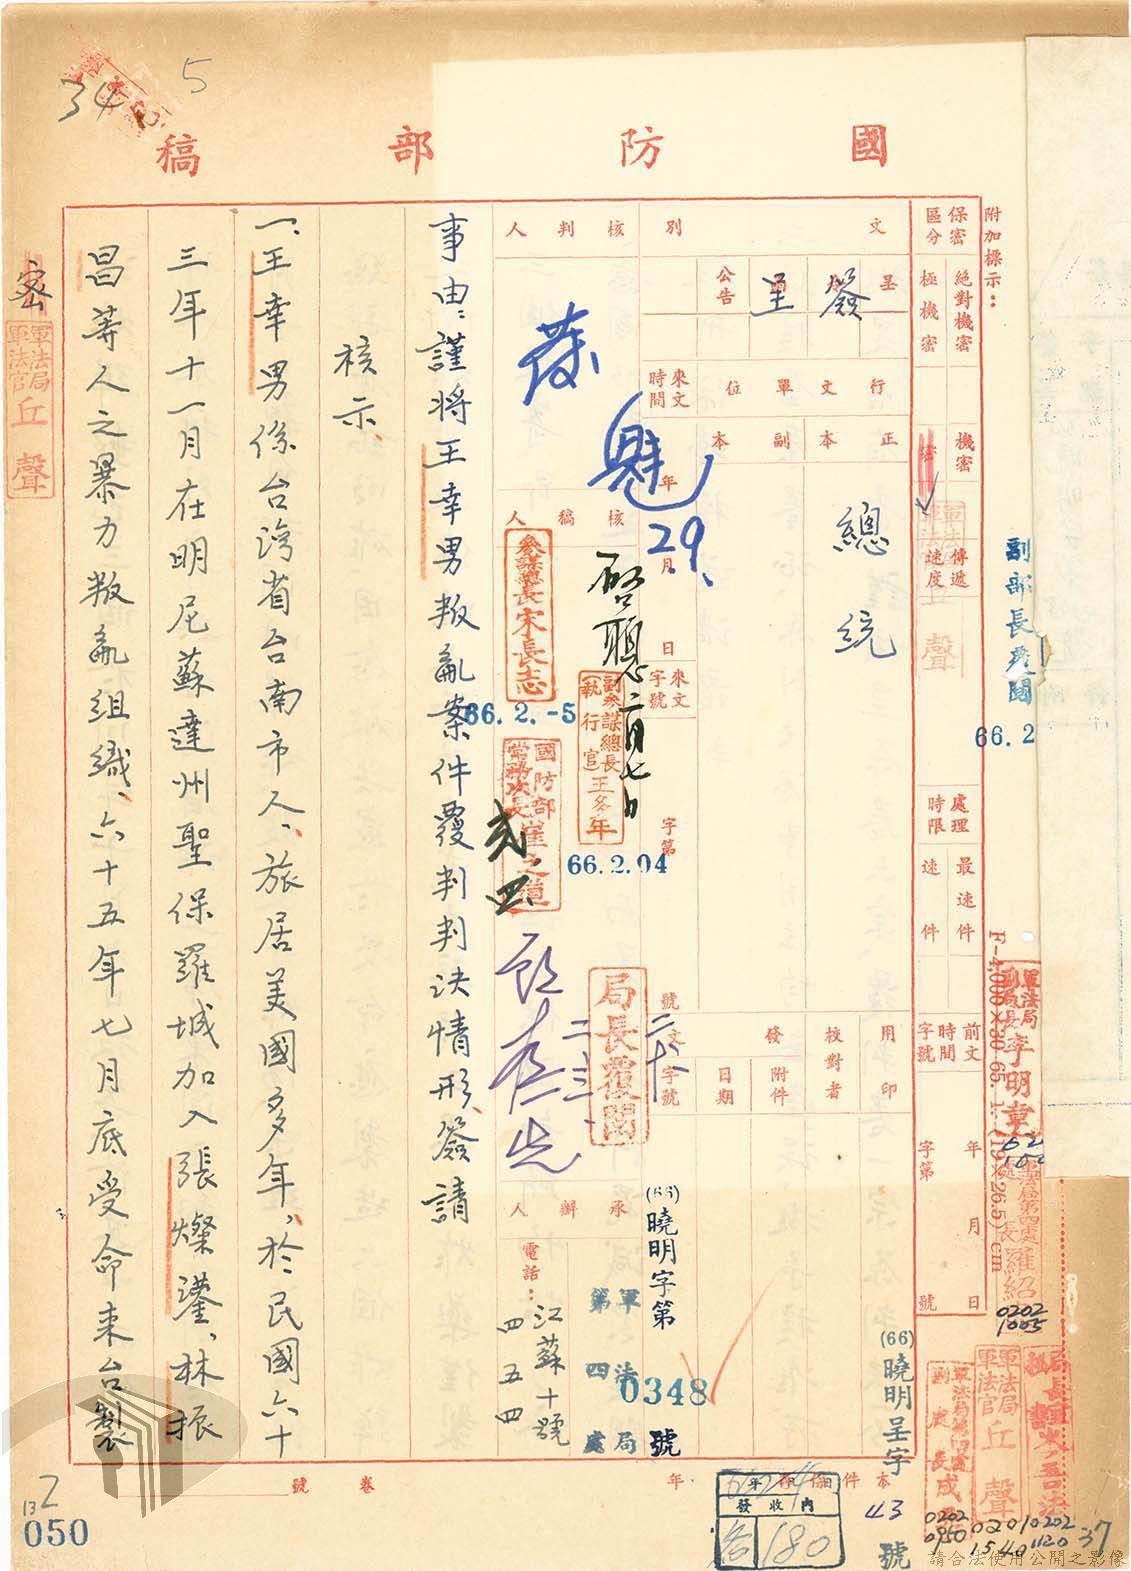 國防部稿
34
5
附加標示：
保密區分
絕對機密
極機密
機密
密
傳遞速度
處理時限
最速件
速件
前文時間字號
年 月 日
字第 號
文別
簽
呈
公告
行文單位
正本
副本
總統
來文時間
年 月 日
來文字號
字第 號
用印
校對者
發文
附件
日期
字號
(66)曉明呈字 43 號
(66)曉明字第 0348 號
核判人
核稿人
29.
參謀總長宋長志
66.2.-5
副參謀總長(執行官)王多年
66.2.04
國防部常務次長崔之道
局長覆閱
承辦人
軍法局第四處
電話：
江蘇十號
四五四
副部長覆閱
66.2
軍法局副局長李明章
F-4,000×30 65. 1. (19×26.5)cm
軍法局第四處處長羅紹
0202
1005
軍法局軍法官丘聲
0201
1540
0202
0950
0202
1120
37
事由：謹將王幸男叛亂案件覆判判決情形、簽請
核示、
一、王幸男係台灣省台南市人、旅居美國多年，於民國六十
三年十一月在明尼蘇達州聖保羅城加入張燦鍙、林振
昌等人之暴力叛亂組織、六十五年七月底受命來台製
密
軍法局軍法官丘聲
本件保存 年
卷號
內收發
180
132
050
請合法使用公開之影像